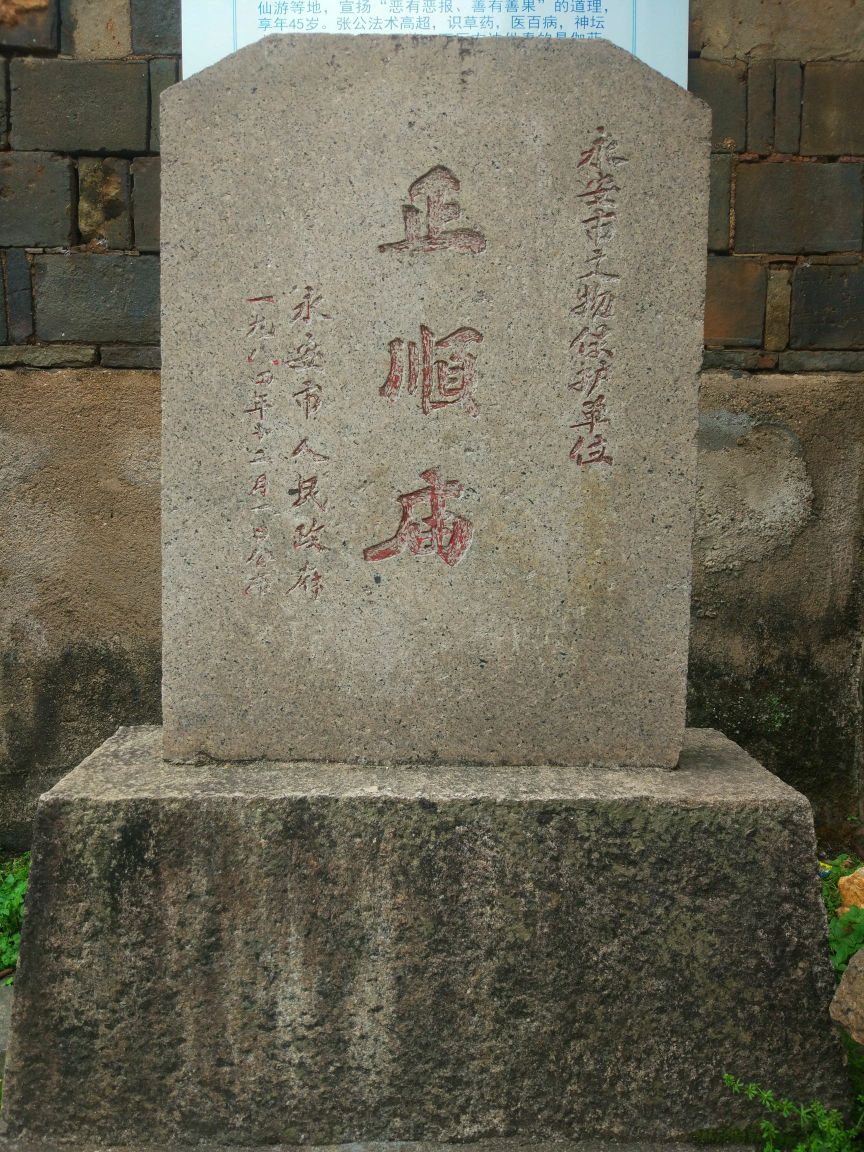 仙游等地，宣扬“恶有恶报、善有善果”的道理，
享年45岁。张公法术高超，识草药，医百病，神坛
永安市文物保护单位
正顺庙
永安市人民政府
一九八四年十二月一日公布